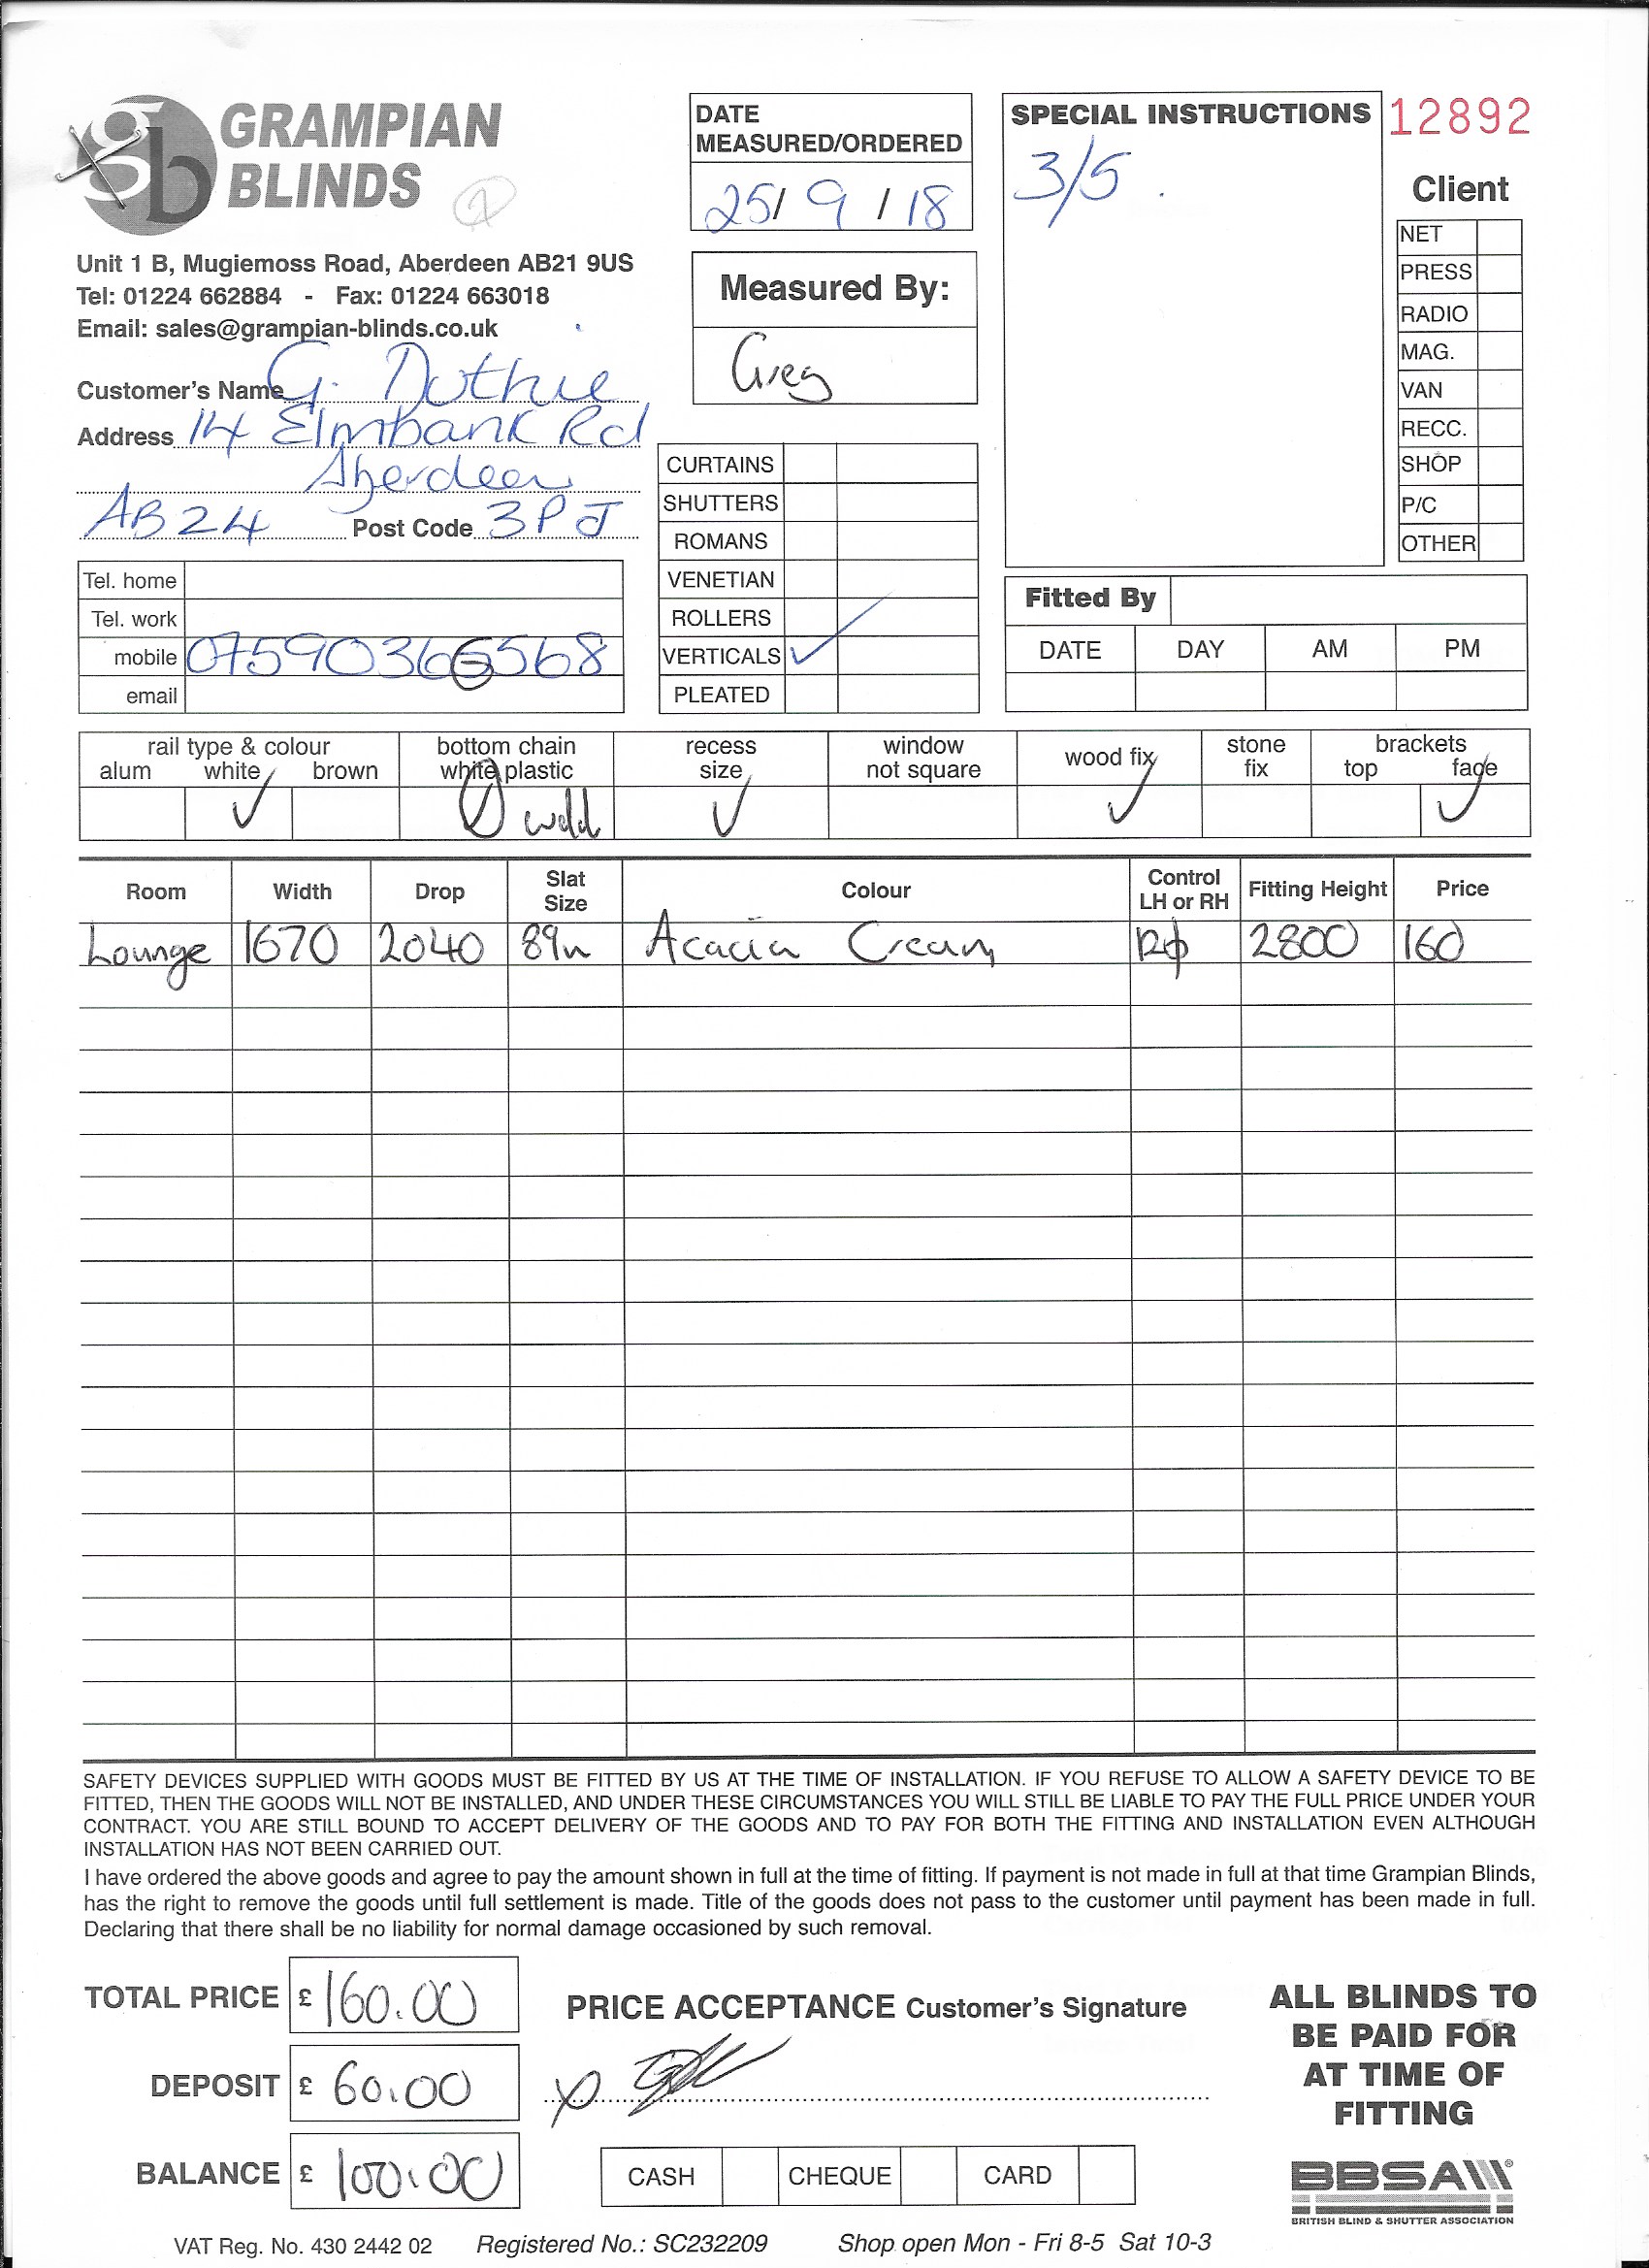 GRAMPIAN BLINDS
Unit 1 B, Mugiemoss Road, Aberdeen AB21 9US
Tel: 01224 662884 - Fax: 01224 663018
Email: sales@grampian-blinds.co.uk
Customer's Name G. Duthie
Address 14 Elmbank Rd
Aberdeen
AB24 Post Code 3PJ
Tel. home
Tel. work
mobile 07590366568
email
DATE MEASURED/ORDERED
25/ 9 / 18
Measured By:
Greg
CURTAINS
SHUTTERS
ROMANS
VENETIAN
ROLLERS
VERTICALS ✓
PLEATED
SPECIAL INSTRUCTIONS
3/5 .
12892
Client
NET
PRESS
RADIO
MAG.
VAN
RECC.
SHOP
P/C
OTHER
Fitted By
DATE DAY AM PM
rail type & colour bottom chain recess window wood fix stone brackets
alum white brown white plastic size not square fix top face
✓ ✓ weld ✓ ✓ ✓
Room Width Drop Slat Size Colour Control LH or RH Fitting Height Price
Lounge 1670 2040 89 Acacia Cream 2800 160
SAFETY DEVICES SUPPLIED WITH GOODS MUST BE FITTED BY US AT THE TIME OF INSTALLATION. IF YOU REFUSE TO ALLOW A SAFETY DEVICE TO BE
FITTED, THEN THE GOODS WILL NOT BE INSTALLED, AND UNDER THESE CIRCUMSTANCES YOU WILL STILL BE LIABLE TO PAY THE FULL PRICE UNDER YOUR
CONTRACT. YOU ARE STILL BOUND TO ACCEPT DELIVERY OF THE GOODS AND TO PAY FOR BOTH THE FITTING AND INSTALLATION EVEN ALTHOUGH
INSTALLATION HAS NOT BEEN CARRIED OUT.
I have ordered the above goods and agree to pay the amount shown in full at the time of fitting. If payment is not made in full at that time Grampian Blinds,
has the right to remove the goods until full settlement is made. Title of the goods does not pass to the customer until payment has been made in full.
Declaring that there shall be no liability for normal damage occasioned by such removal.
TOTAL PRICE £ 160.00
DEPOSIT £ 60.00
BALANCE £ 100.00
PRICE ACCEPTANCE Customer's Signature
CASH CHEQUE CARD
ALL BLINDS TO
BE PAID FOR
AT TIME OF
FITTING
BBSA
BRITISH BLIND & SHUTTER ASSOCIATION
VAT Reg. No. 430 2442 02 Registered No.: SC232209 Shop open Mon - Fri 8-5 Sat 10-3